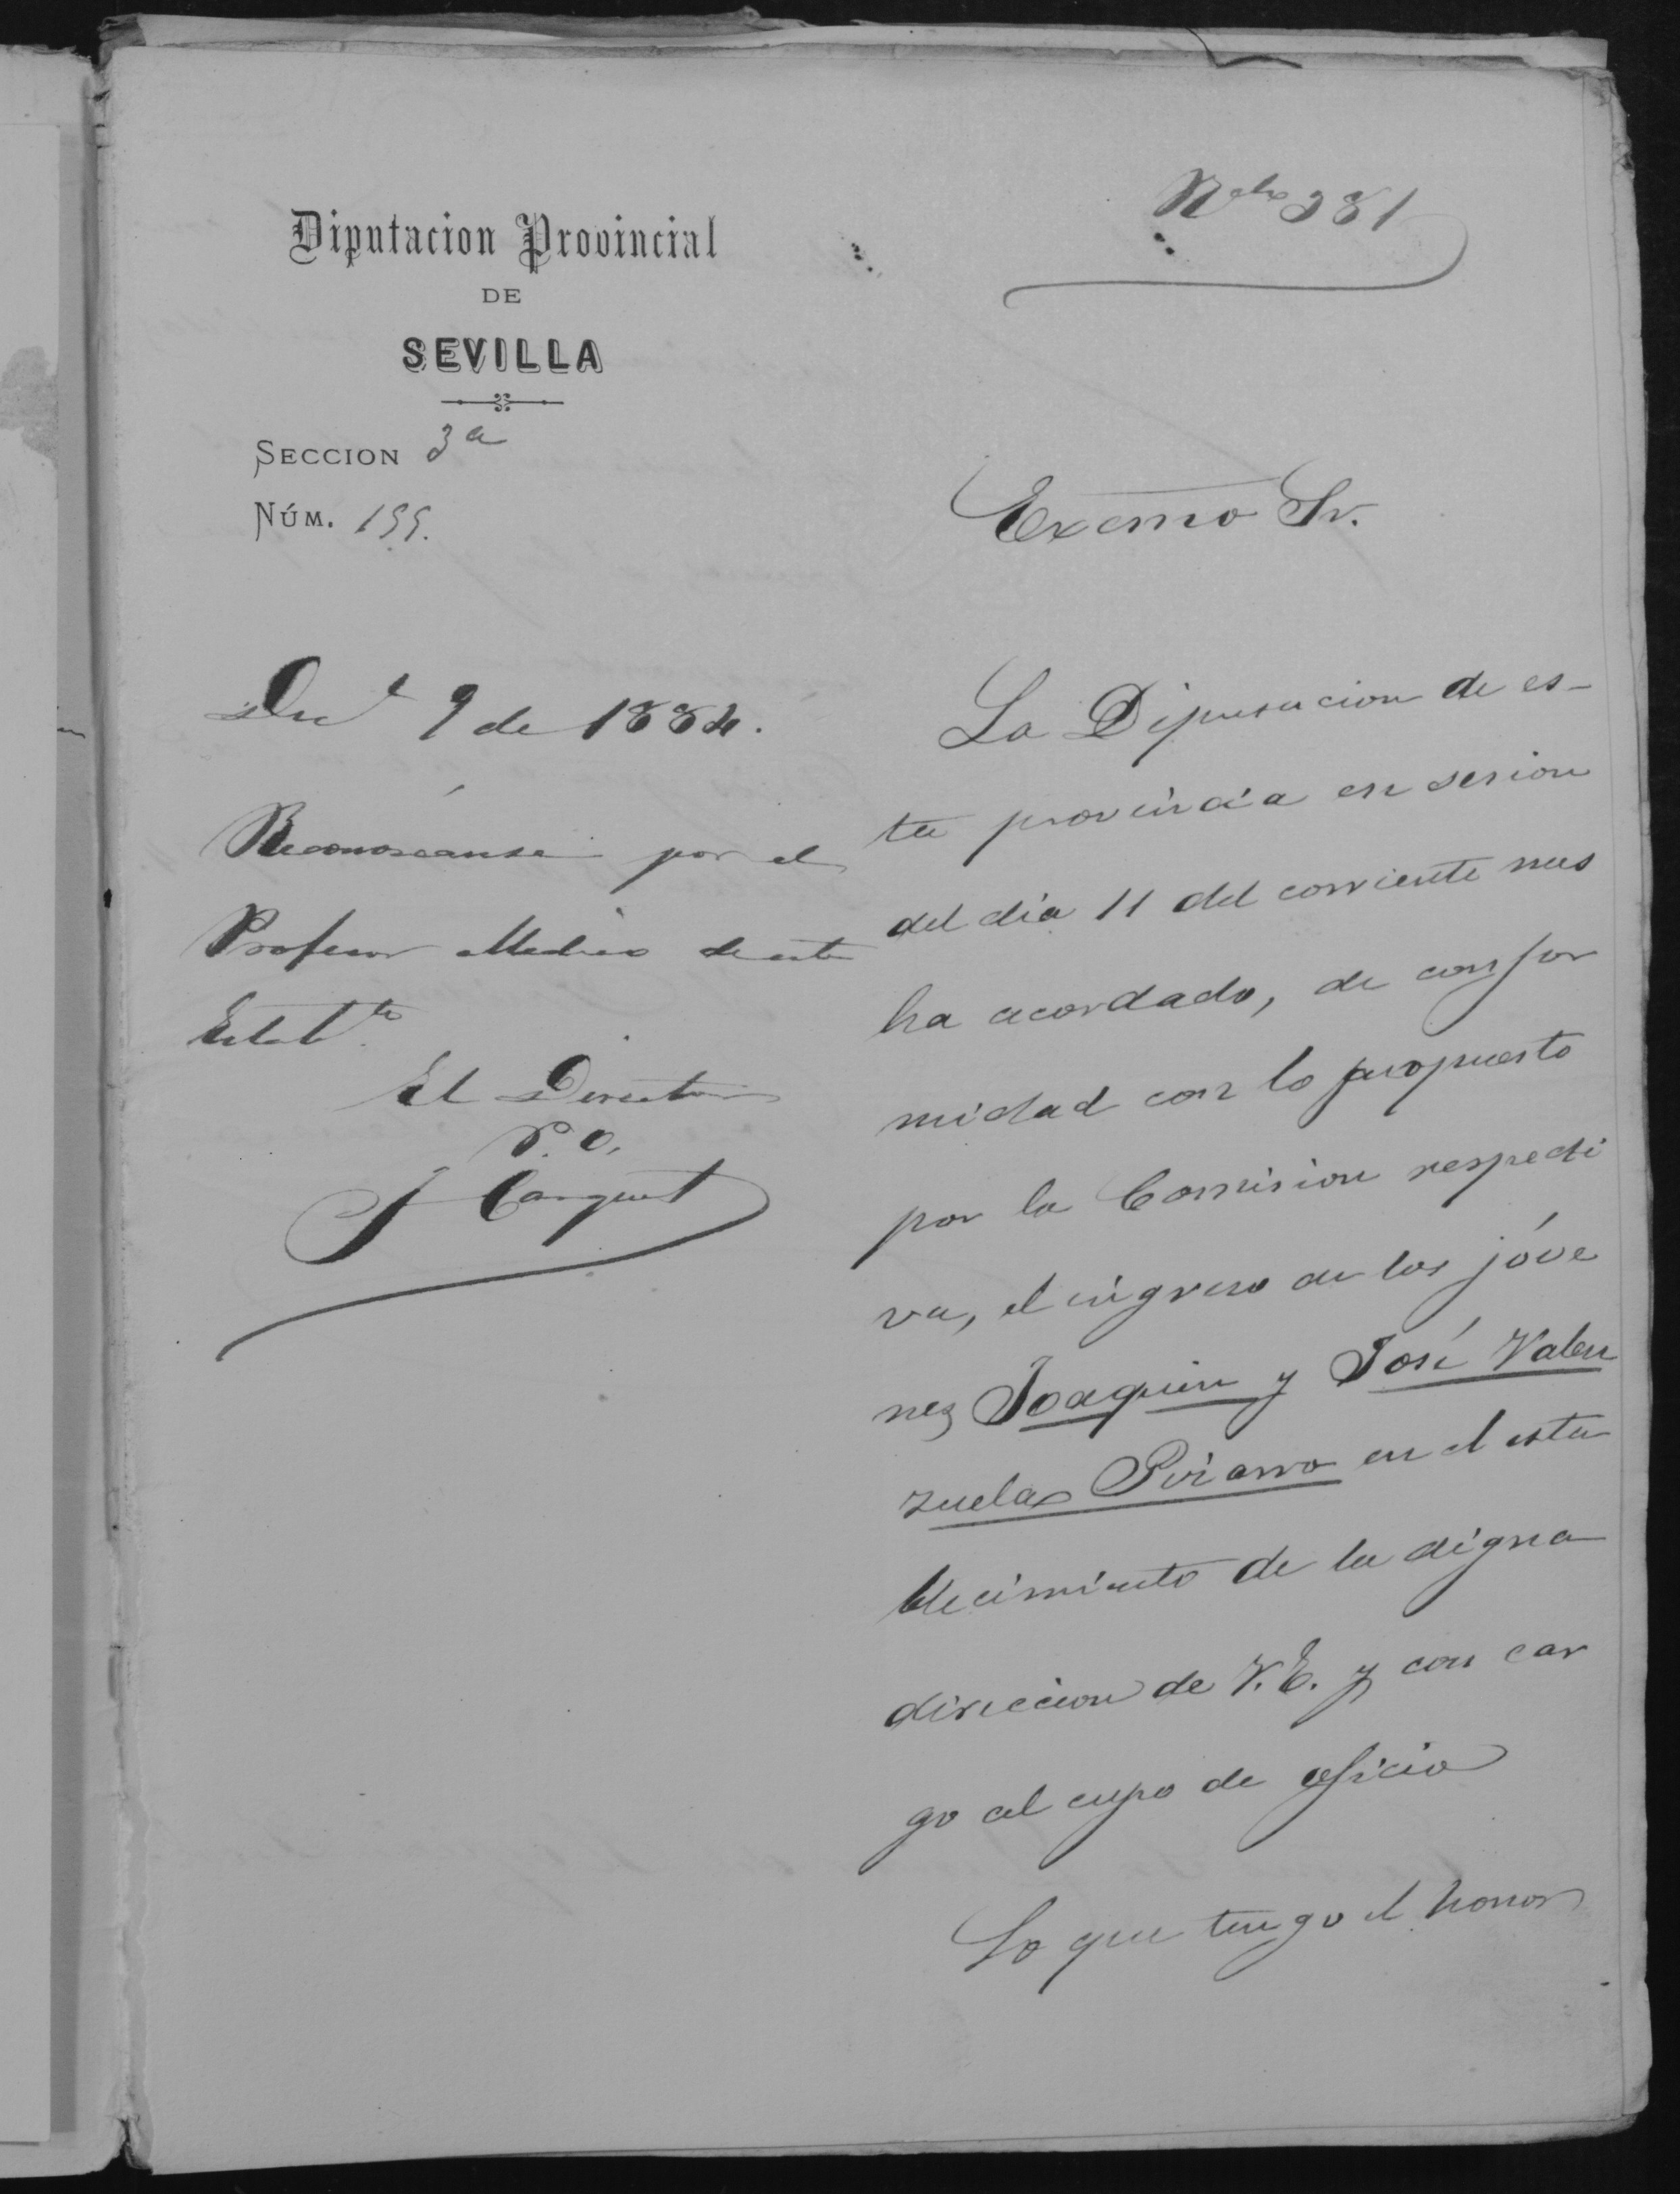 Diputacion Provincial
DE
SEVILLA
SECCION 3a
NÚM. 199.
381
Dic.e 9 de 1884.
Reconozcanse por el
Profesor Medico de este
Estab.to
El Director
P.O.
Excmo Sr.
La Diputacion de es-
ta provincia en sesion
del dia 11 del corriente mes
ha acordado, de confor
midad con lo propuesto
por la Comision respecti
va, el ingreso de los jóve
nes Joaquin y José Valen
zuela Pizarro en el esta
blecimiento de la digna
direccion de V.E. y con car
go al cupo de oficio
Lo que tengo el honor